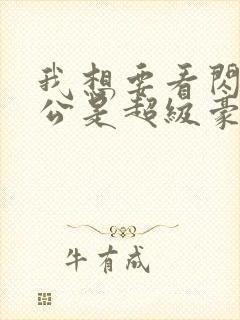 我想要看閃
公是超級豪
牛有成